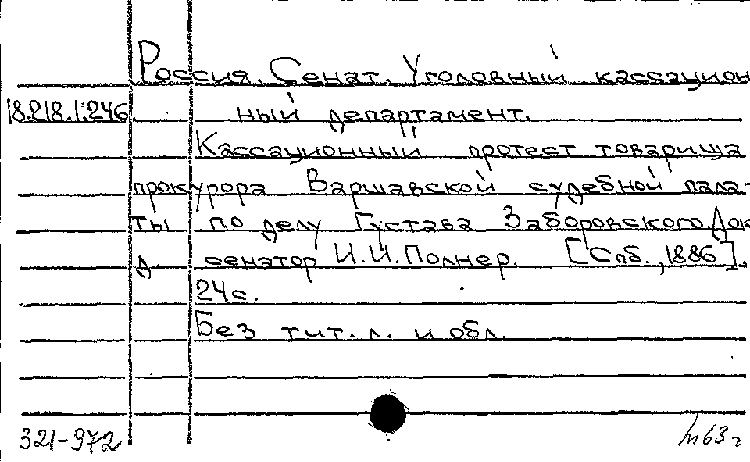 Россия. Сенат. Уголовный кассацион
18.218.1.246 ный департамент.
Кассационный протест товарища
прокурора Варшавской судебной пала-
ты по делу Густава Заборовского. Док
л. сенатор И.И. Полнер. [Спб., 1886].
24 с.
Без тит. л. и обл.
321-972